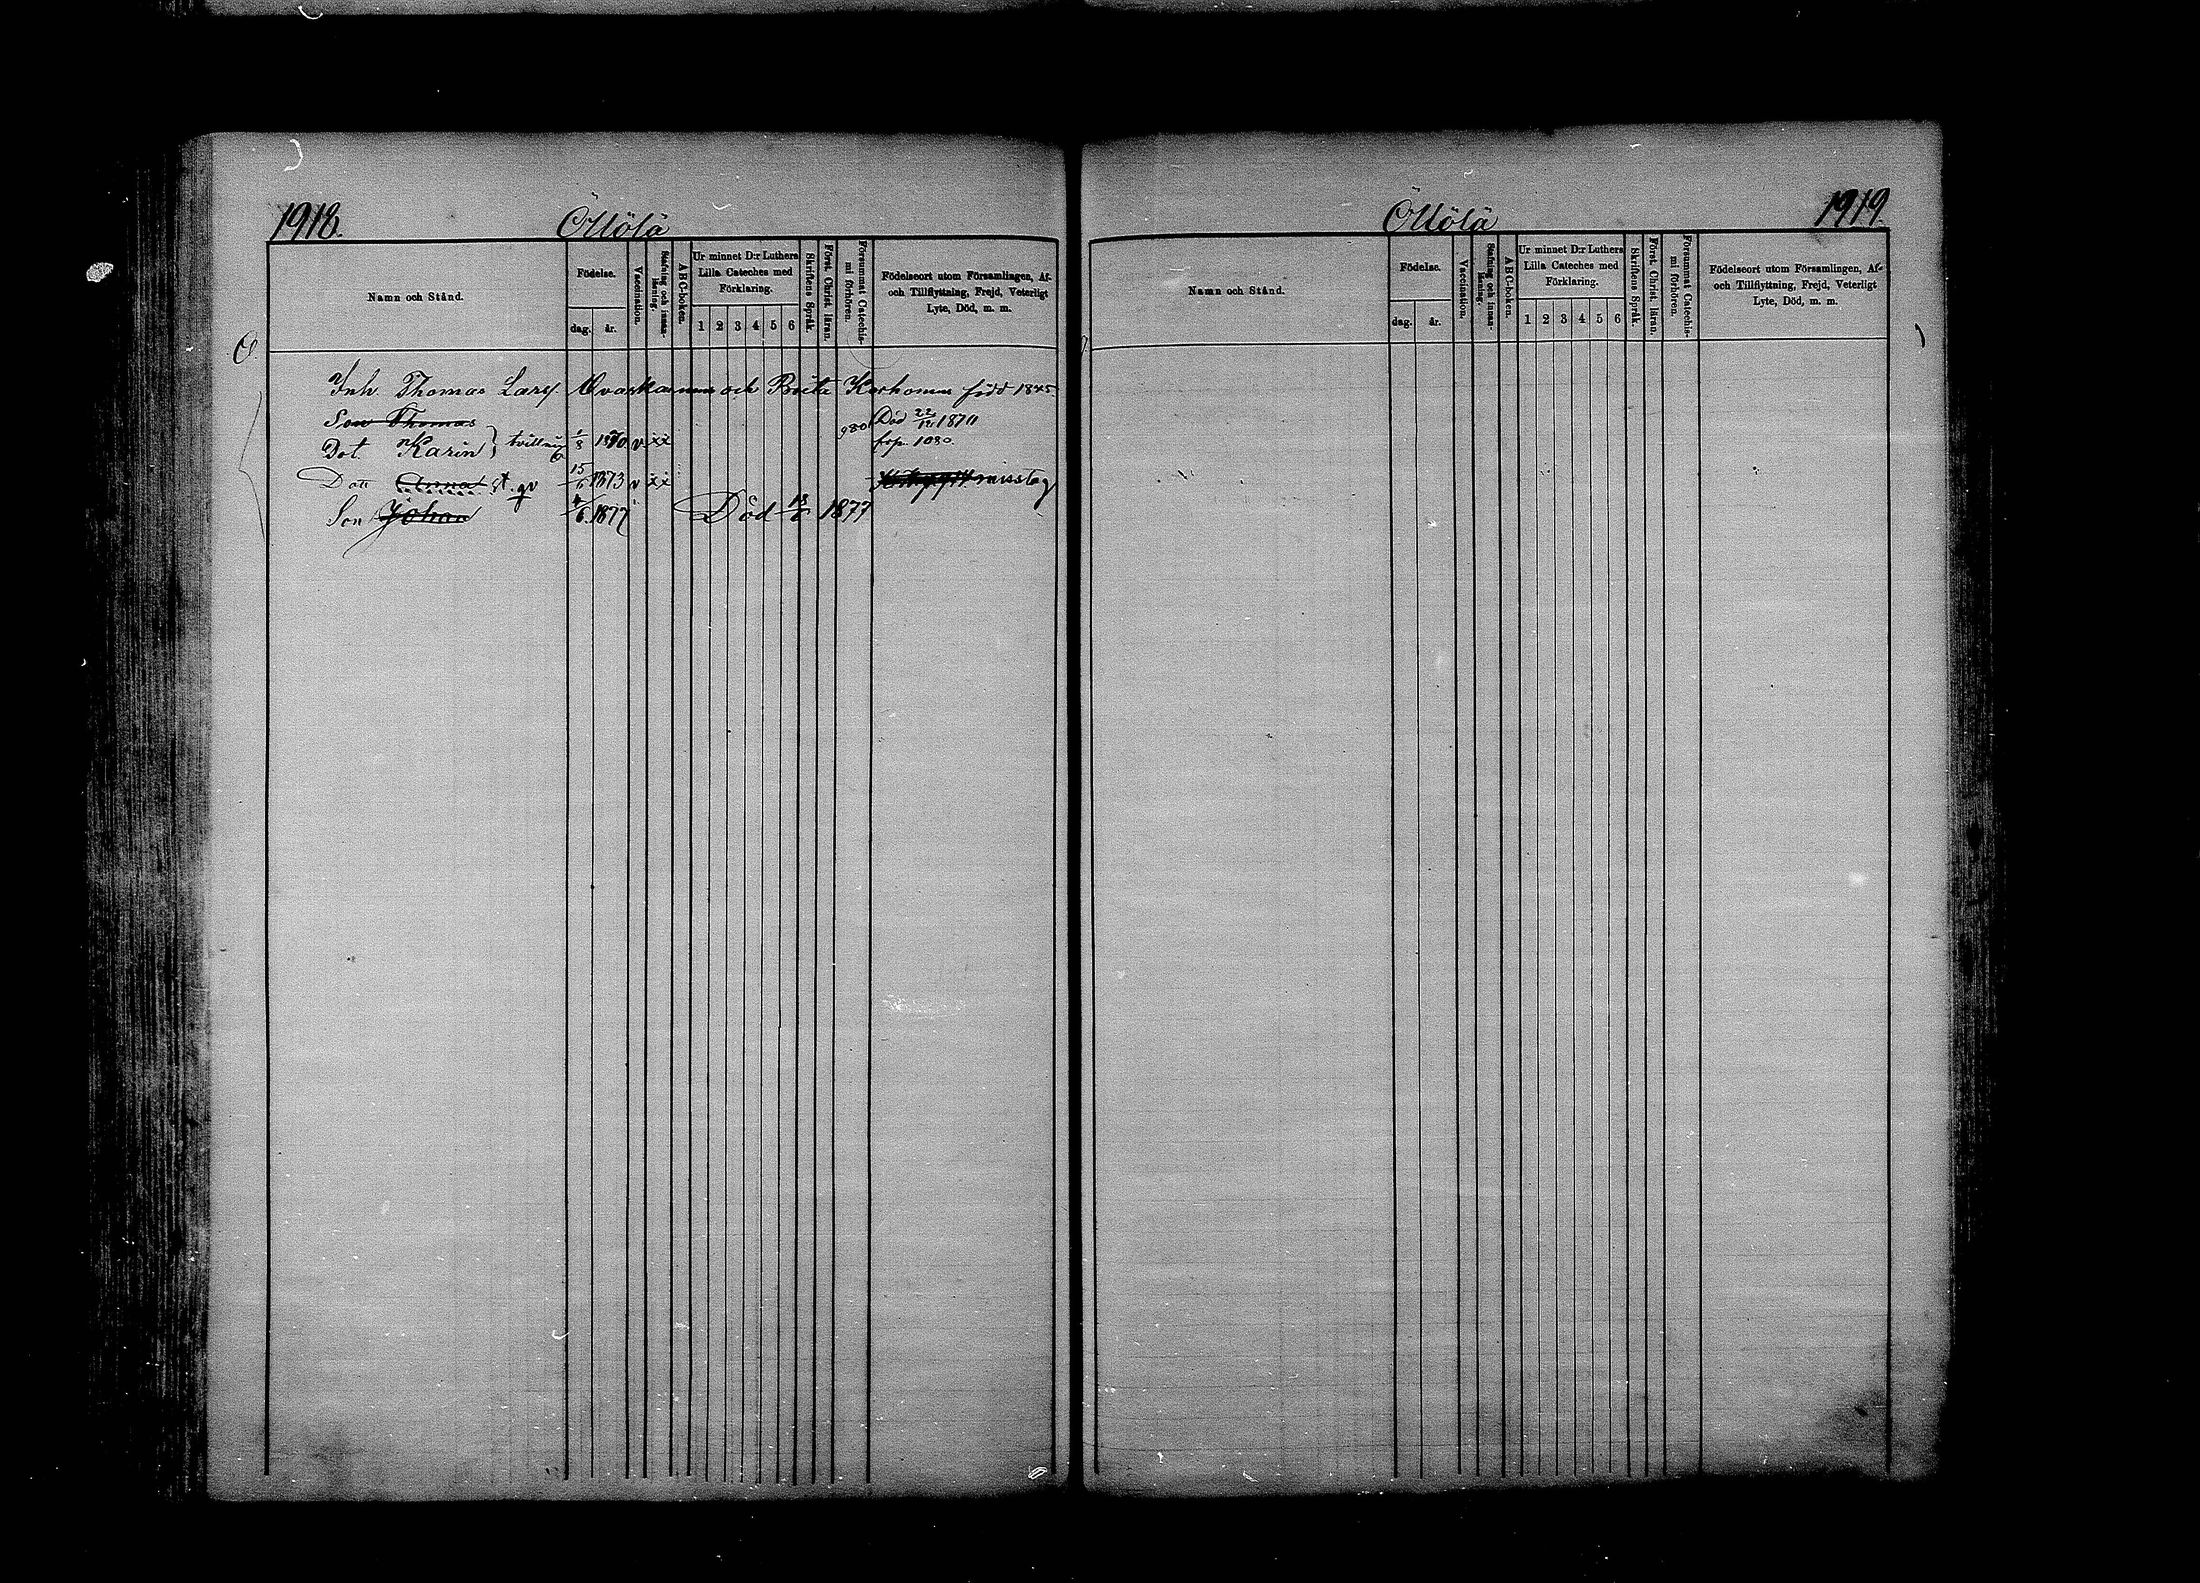 1918.
Öllölä
Namn och Stånd.
Födelse.
dag. år.
Vaccination.
Stafning och innan-läsning.
ABC-boken.
Ur minnet D:r Luthers
Lilla Cateches med
Förklaring.
1 2 3 4 5 6
Skriftens Språk.
Först. Christ. läran.
Försummat Catechis-
mi förhören.
Födelseort utom Församlingen, Af-
och Tillflyttning, Frejd, Veterligt
Lyte, Död, m. m.
Inh. Thomas Larss. och Brita Korhonen född 1845.
Son Thomas Död 22/12 1870
Dot. Karin tvilling 1/8 1870 v xx 980 fop. 1080.
Dott Anna st. qv 15/6 1873 v xx misstag
Son Johan 1877 Död 1877
Öllölä
1919.
Namn och Stånd.
Födelse.
dag. år.
Vaccination.
Stafning och innan-läsning.
ABC-boken.
Ur minnet D:r Luthers
Lilla Cateches med
Förklaring.
1 2 3 4 5 6
Skriftens Språk.
Först. Christ. läran.
Försummat Catechis-
mi förhören.
Födelseort utom Församlingen, Af-
och Tillflyttning, Frejd, Veterligt
Lyte, Död, m. m.